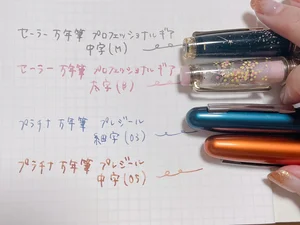 セーラー万年筆 プロフェッショナルギア
中字(M)
セーラー万年筆 プロフェッショナルギア
太字(B)
プラチナ万年筆 プレジール
細字(03)
プラチナ万年筆 プレジール
中字(05)